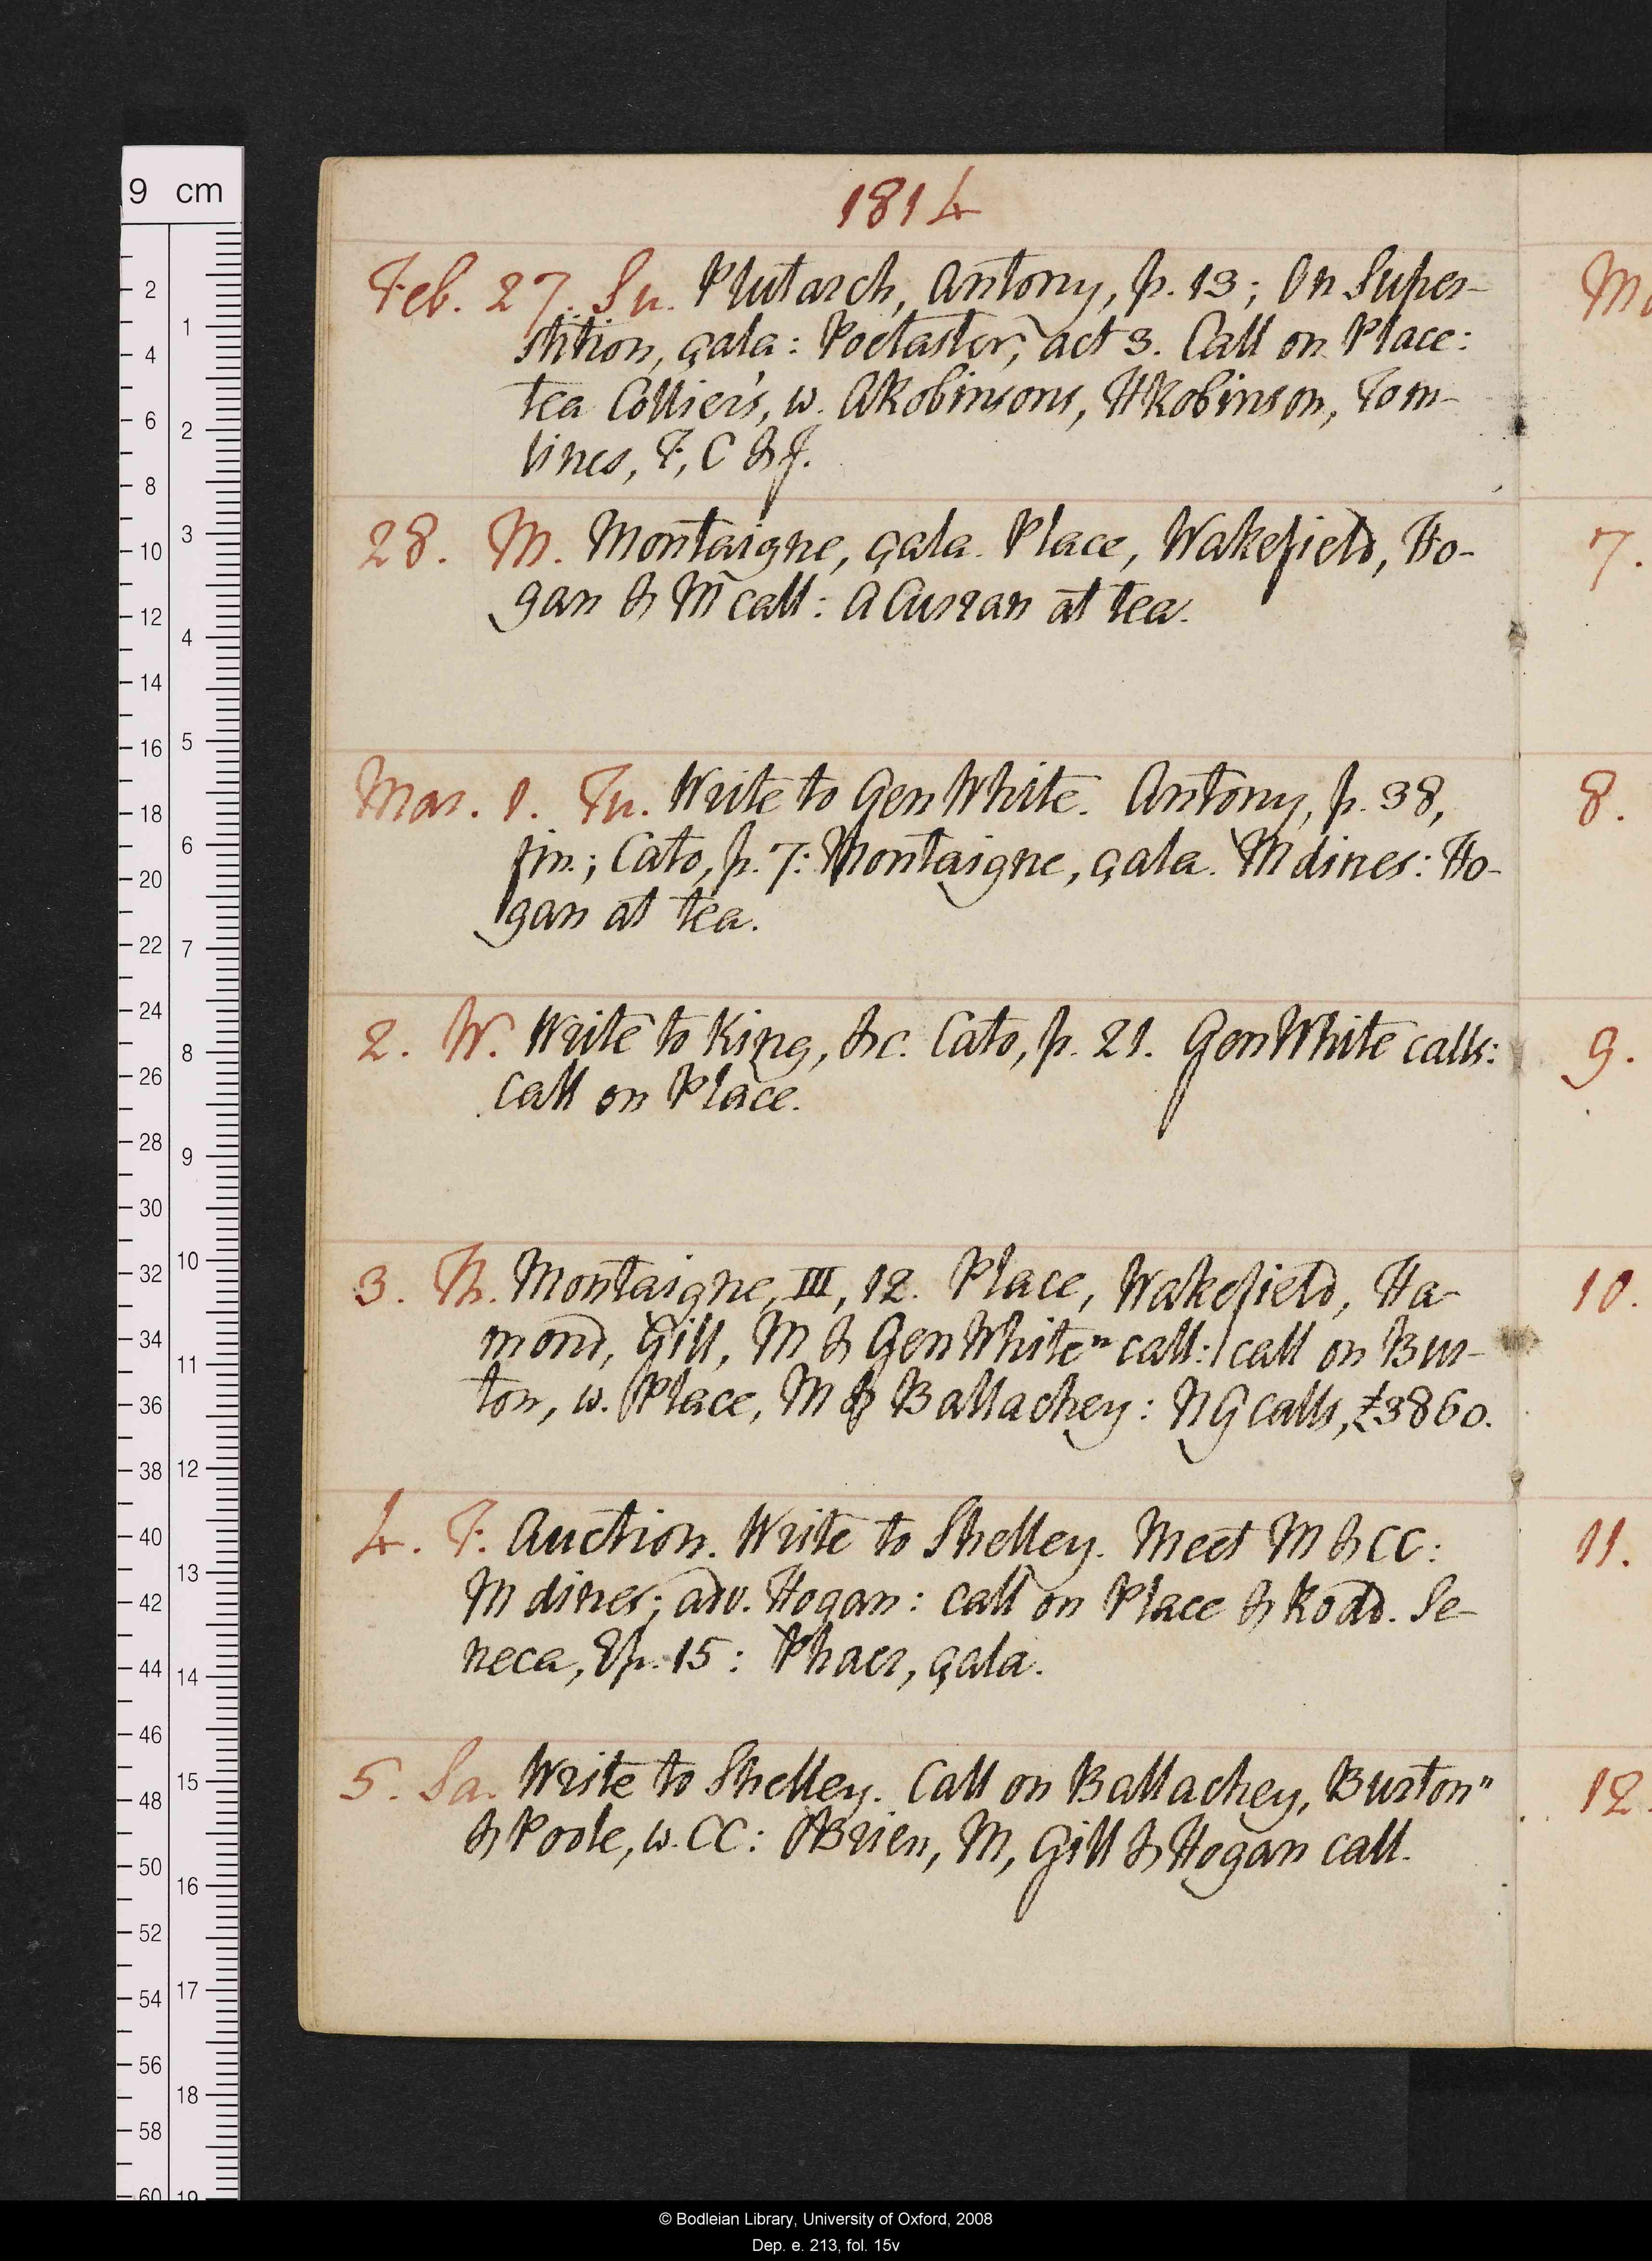 1814
Feb. 27. Su. Plutarch, Antony, p. 13; On Super-
stition, çala: Poetaster, act 3. Call on Place:
tea Collier's, w. ARobinsons, HRobinson, Tom-
lines, F, C & J.
28. M. Montaigne, çala. Place, Wakefield, Ho-
gan & M call: A Curran at tea.
Mar. 1. Tu. Write to Gen White. Antony, p. 38,
fin.; Cato, p. 7: Montaigne, çala. M dines: Ho-
gan at tea.
2. W. Write to King, &c. Cato, p. 21. Gen White calls:
call on Place.
3. Th. Montaigne, III, 12. Place, Wakefield, Ha-
mond, Gill, M & Gen White" call: call on Bur-
ton, w. Place, M & Ballachey: N G calls, £3860.
4. F. Auction. Write to Shelley. Meet M & CC:
M dines; adv. Hogan: call on Place & Rodd. Se-
neca, Ep. 15: Phaer, çala.
5. Sa. Write to Shelley. Call on Ballachey, Burton"
& Poole, w. CC: OBrien, M, Gill & Hogan call.
7.
8.
9.
10.
11.
12.
9 cm
2
4
6
8
10
12
14
16
18
20
22
24
26
28
30
32
34
36
38
40
42
44
46
48
50
52
54
56
58
60
1
2
3
4
5
6
7
8
9
10
11
12
13
14
15
16
17
18
19
© Bodleian Library, University of Oxford, 2008
Dep. e. 213, fol. 15v